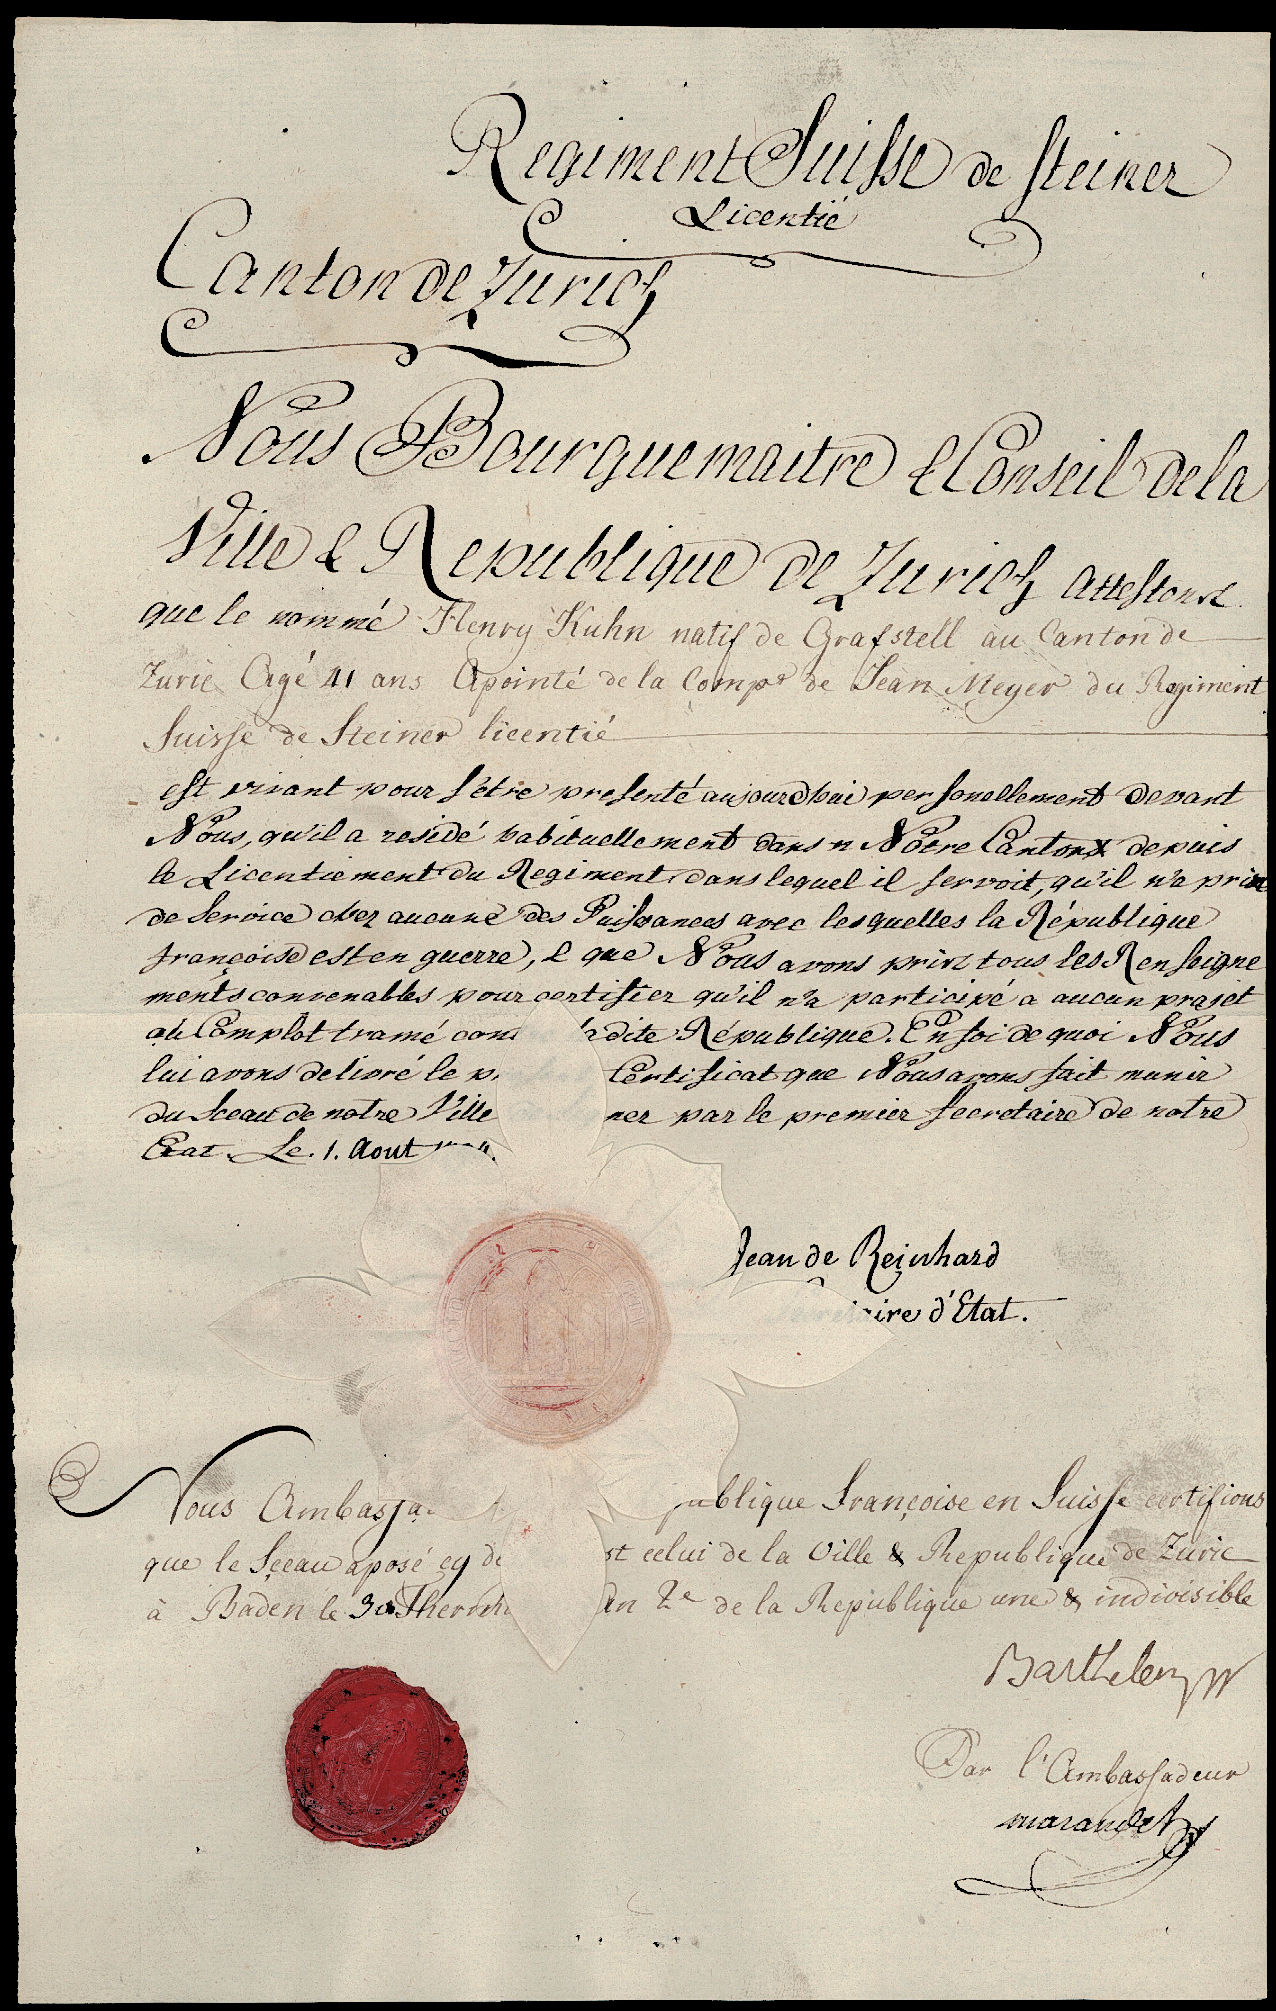 Regiment Suisse de Steiner
Licentié
Canton de Zurich
Nous Bourguemaitre & Conseil de la
Ville & Republique de Zurich attestons
que le nommé Henry Kuhn natif de Grafstell au Canton de
Zuric Agé 41 ans Apointé de la Comp.e de Jean Meyer du Regiment
Suisse de Steiner licentié
est vivant pour s'être presenté aujourdhui personellement devant
Nous, qu'il a residé habituellement dans n Nôtre Canton depuis
le Licentiement du Regiment dans lequel il servoit, qu'il n'a prix
de Service chez aucune des Puissances avec lesquelles la République
françoise est en guerre, & que Nous avons prix tous les Renseigne
ments convenables pour certifier qu'il n'a participé a aucun projet
au Complot tramé con dite République. En foi de quoi Nous
lui avons delivré le p Certificat que Nous avons fait munir
du Sceau de notre Ville ner par le premier Secretaire de notre
Etat. Le. 1. Aout
Jean de Reinhard
ire d'Etat.
Nous Ambassa ublique Françoise en Suisse certifions
que le Sceau aposé cy de st celui de la Ville & Republique de Zuric
à Baden le 30 Thermi an 2e de la Republique une & indivisible
Barthelemy
Par l'Ambassadeur
marandet